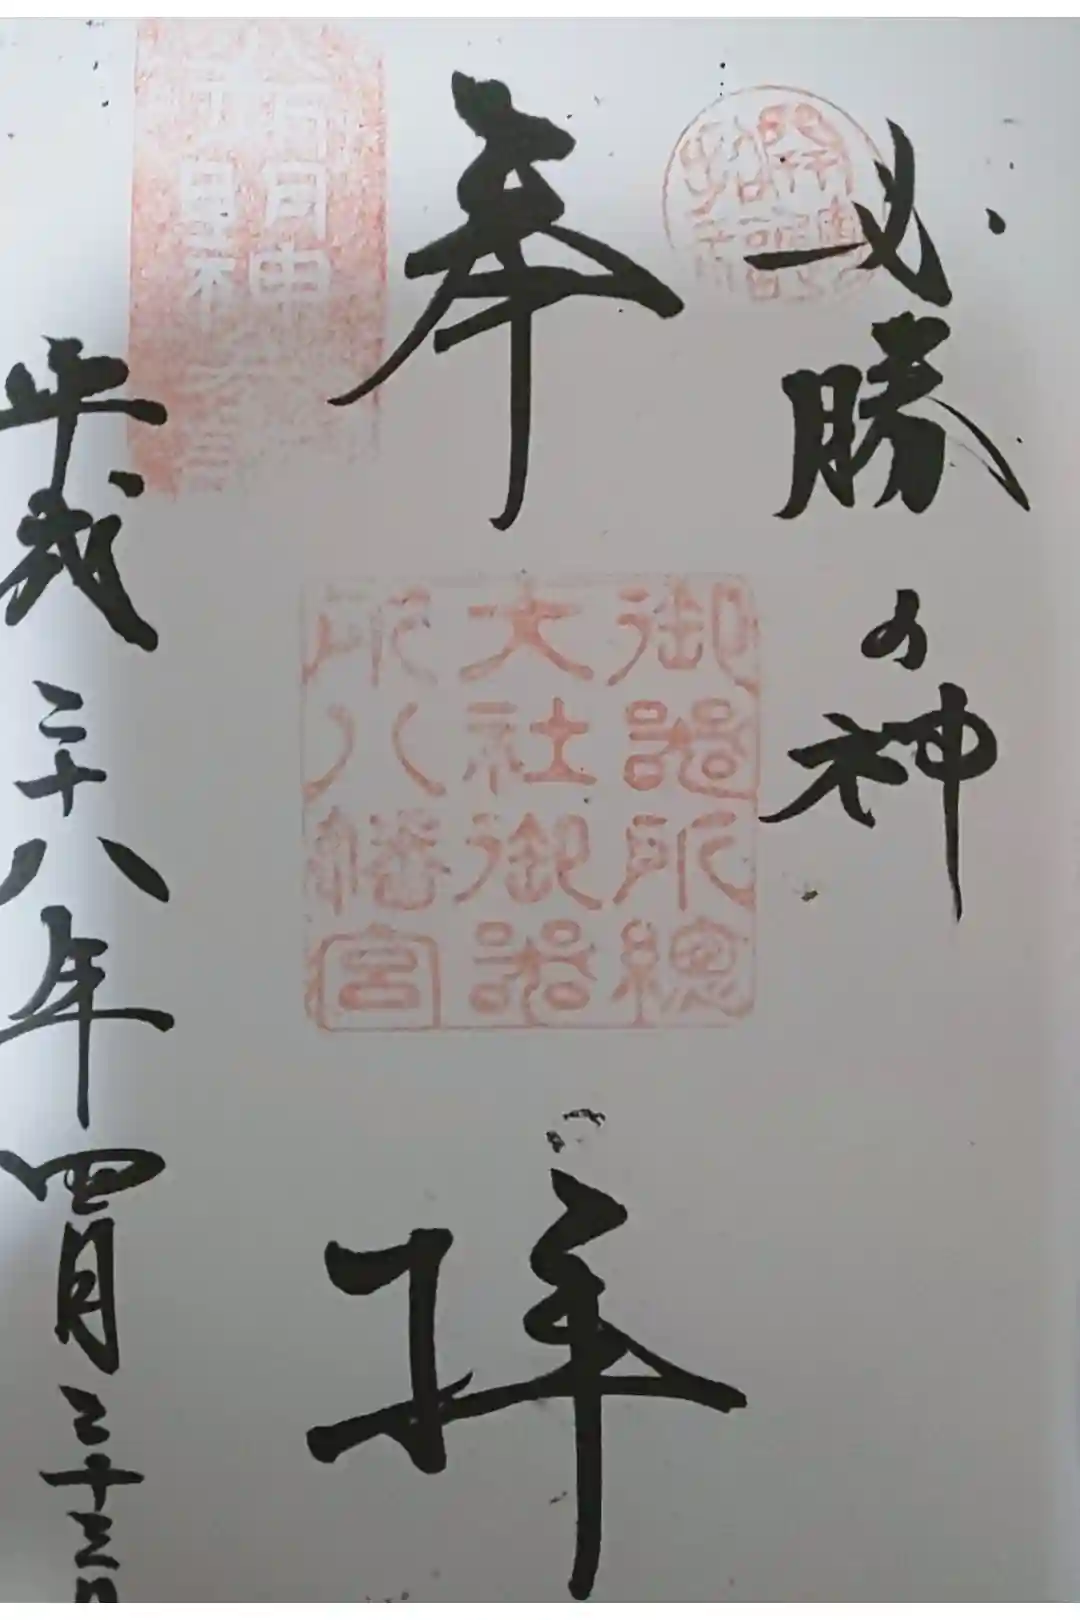 必勝の神
奉拝
御器所總
大社御器
所八幡宮
平成二十八年四月二十三日